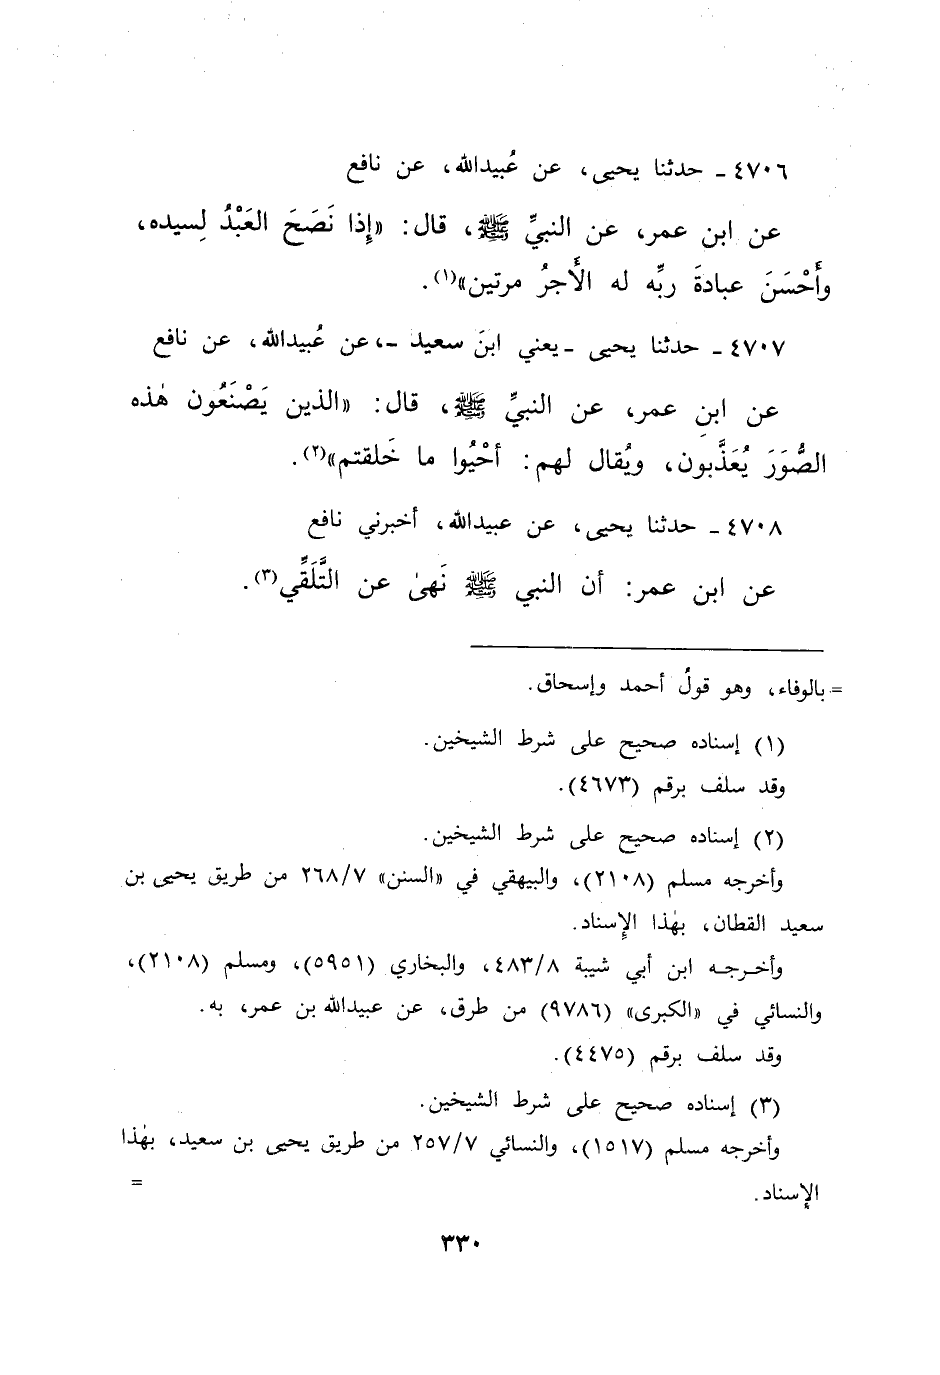 ٤٧٠٦ ـ حدثنا يحيى، عن عُبيدالله، عن نافع
عن ابن عمر، عن النبيِّ ﷺ، قال: «إِذا نَصَحَ العَبْدُ لِسيده،
وأَحْسَنَ عبادةَ ربِّه له الأَجرُ مرتين»(١).
٤٧٠٧ ـ حدثنا يحيى ـ يعني ابنَ سعيد ـ، عن عُبيدالله، عن نافع
عن ابنِ عمر، عن النبيِّ ﷺ، قال: «الذين يَصْنَعُون هٰذه
الصُّوَرَ يُعَذَّبون، ويُقال لهم: أحْيُوا ما خَلقتم»(٢).
٤٧٠٨ ـ حدثنا يحيى، عن عبيدالله، أخبرني نافع
عن ابن عمر: أن النبي ﷺ نَهىٰ عن التَّلَقِّي(٣).
= بالوفاء، وهو قولُ أحمد وإسحاق.
(١) إسناده صحيح على شرط الشيخين.
وقد سلف برقم (٤٦٧٣).
(٢) إسناده صحيح على شرط الشيخين.
وأخرجه مسلم (٢١٠٨)، والبيهقي في «السنن» ٢٦٨/٧ من طريق يحيى بن
سعيد القطان، بهٰذا الإِسناد.
وأخرجه ابن أبي شيبة ٤٨٣/٨، والبخاري (٥٩٥١)، ومسلم (٢١٠٨)،
والنسائي في «الكبرى» (٩٧٨٦) من طرق، عن عبيدالله بن عمر، به.
وقد سلف برقم (٤٤٧٥).
(٣) إسناده صحيح على شرط الشيخين.
وأخرجه مسلم (١٥١٧)، والنسائي ٢٥٧/٧ من طريق يحيى بن سعيد، بهٰذا
الإِسناد. =
٣٣٠